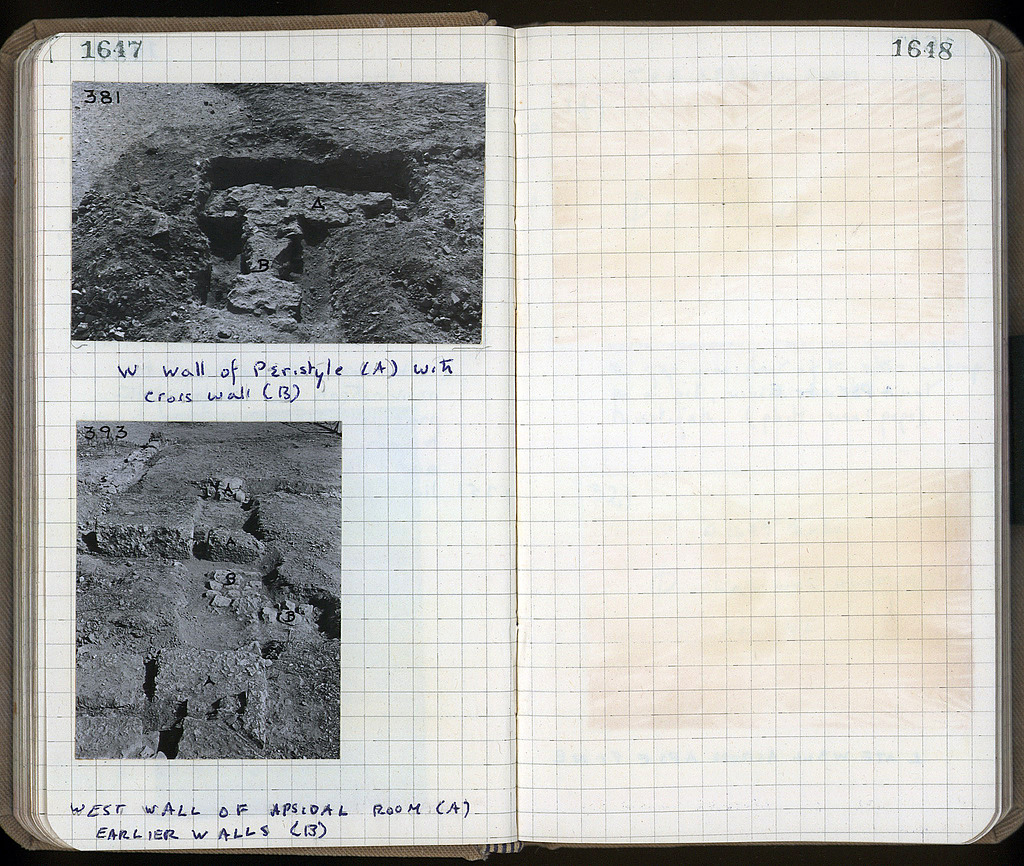 1647
1648
381
A
B
W Wall of Peristyle (A) with
cross wall (B)
393
A
A
B
B
A
WEST WALL OF APSIDAL ROOM (A)
EARLIER WALLS (B)